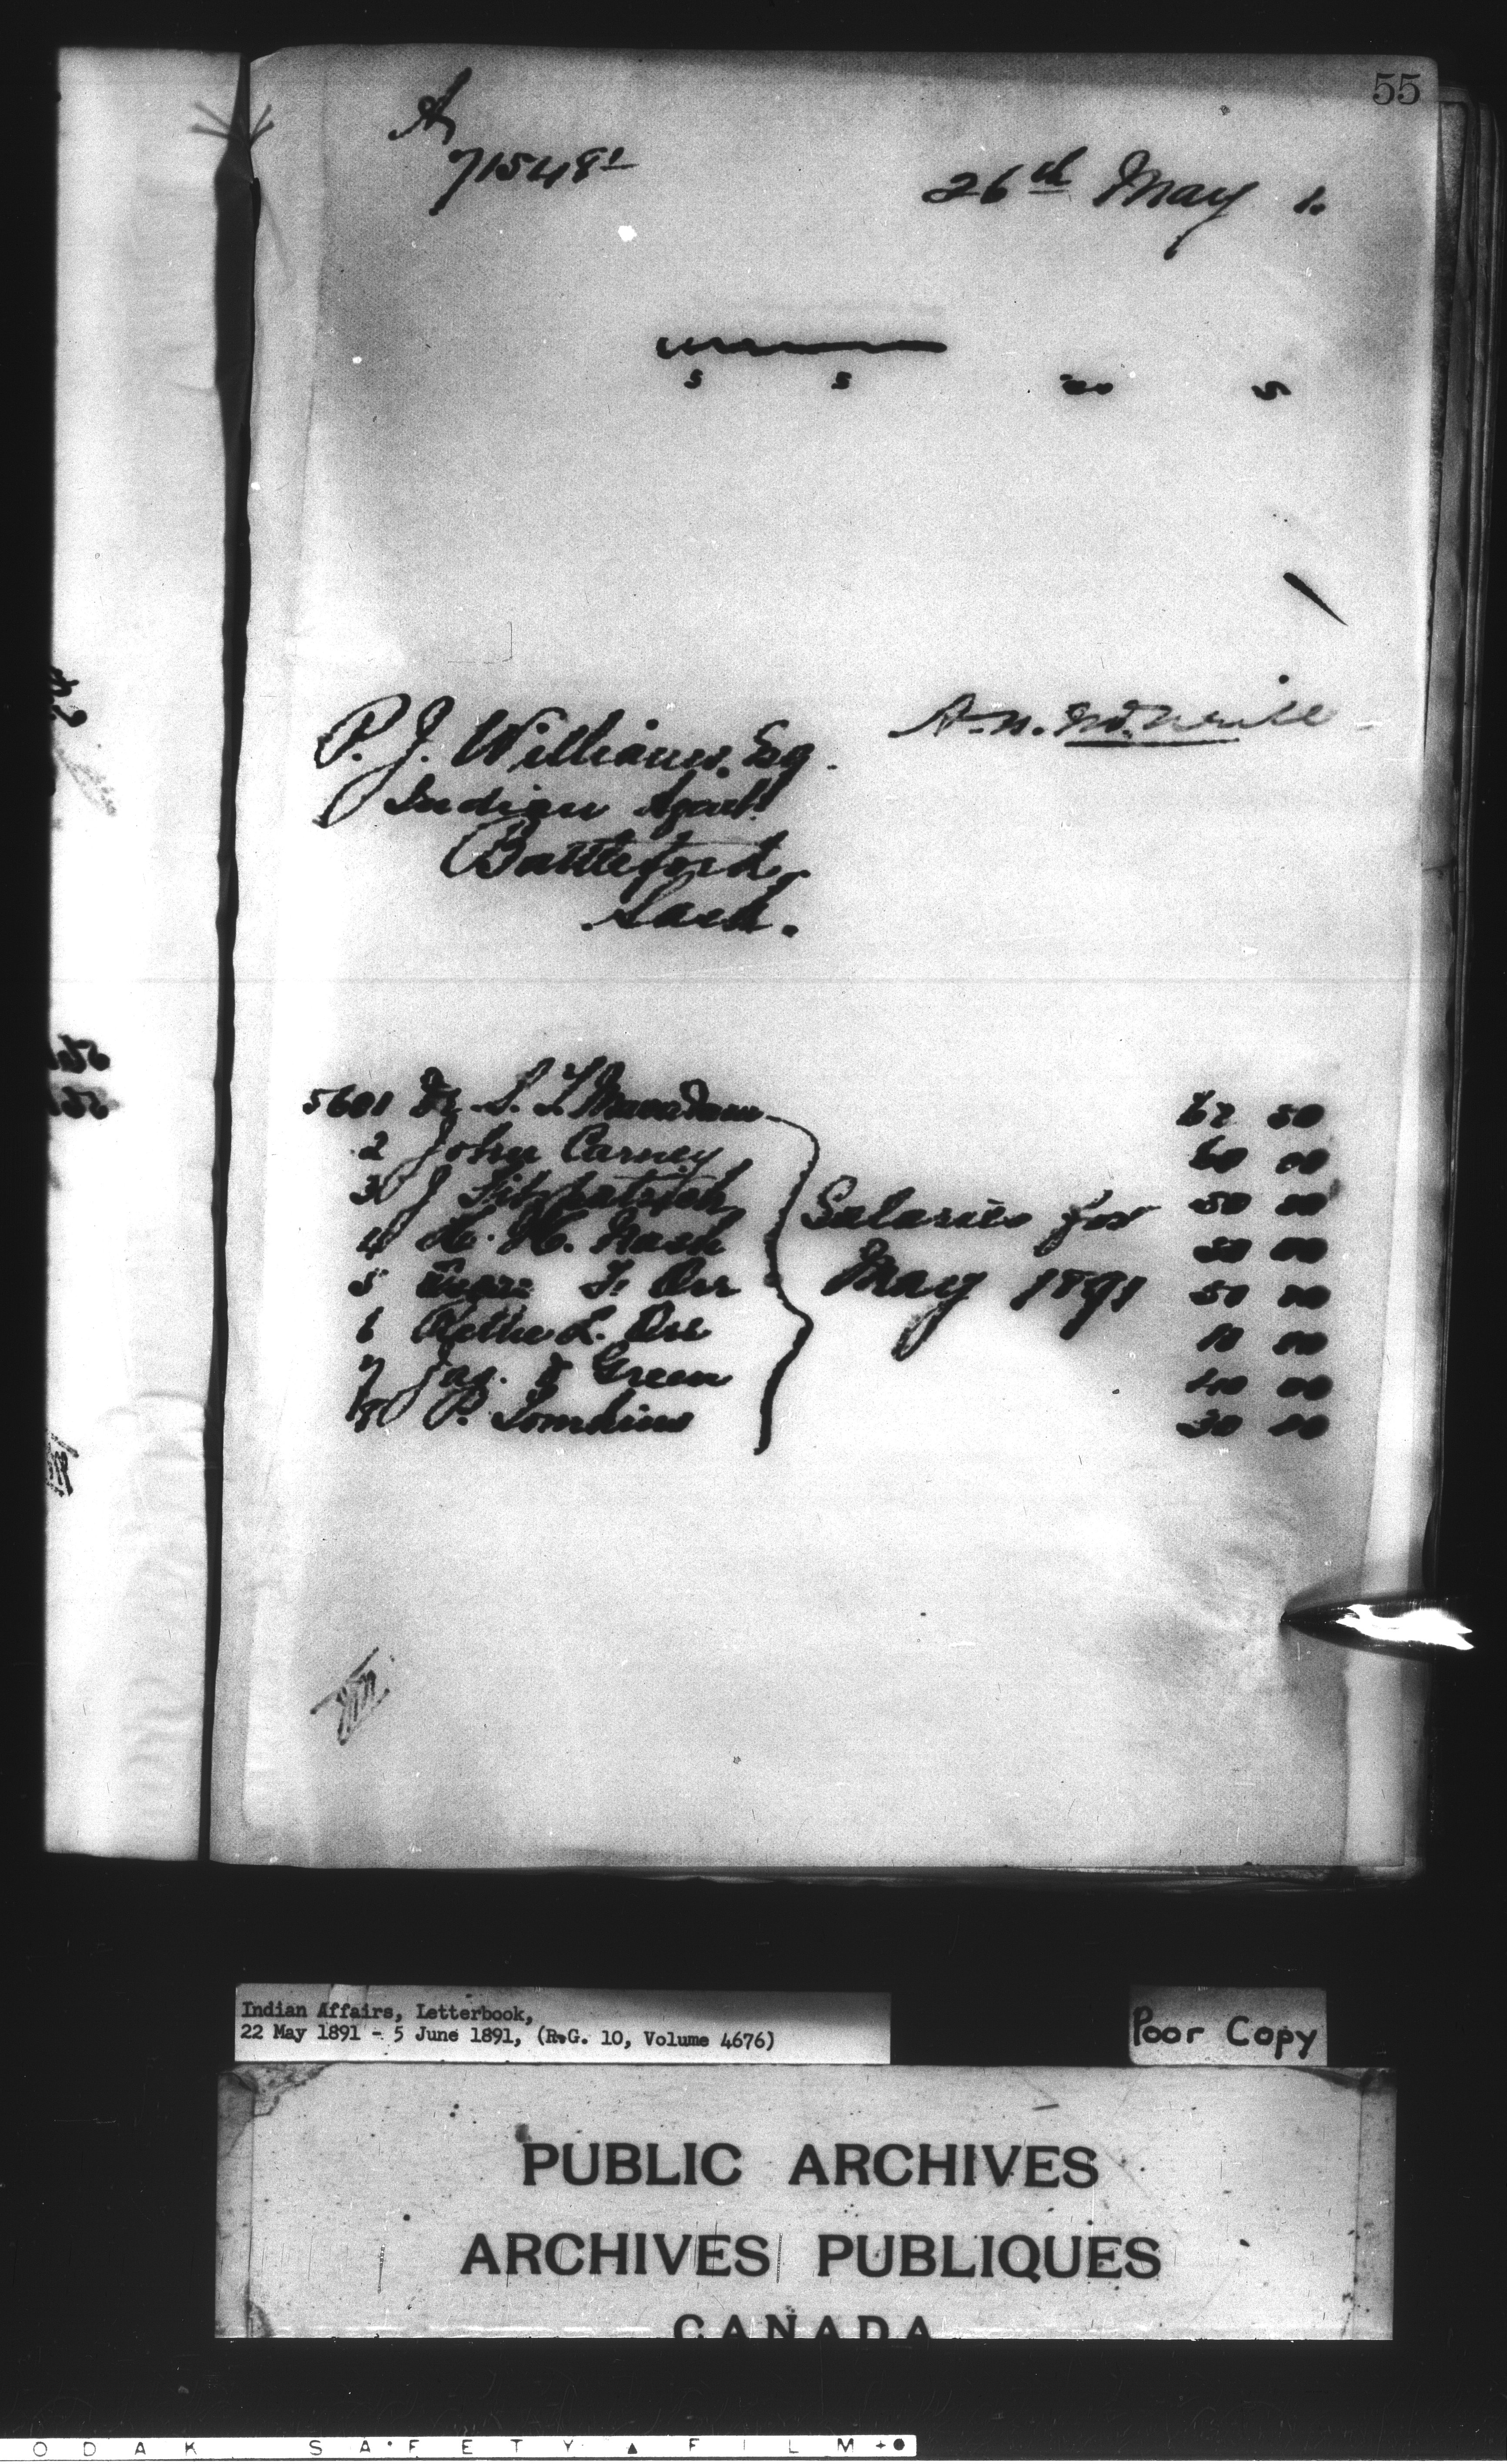 55
A
71548¹
26th May 1.
s s s
A. N. McNeill
P. J. Williams, Esq.
Indian Agent
Battleford,
Sask.
5601 Dr. S. T. 62 50
2 John Carney 60 00
3 J Fitzpatrick 50 00
4 H. H. Nash 50 00
Salaries for
5 F. Orr 50 00
May 1891
6 L. Orr 00
7 Jas. Green 40 00
8 P. Tomkins 30 00
Indian Affairs, Letterbook,
22 May 1891 - 5 June 1891, (R.G. 10, Volume 4676)
Poor Copy
PUBLIC ARCHIVES
ARCHIVES PUBLIQUES
CANADA
ODAK SAFETY FILM